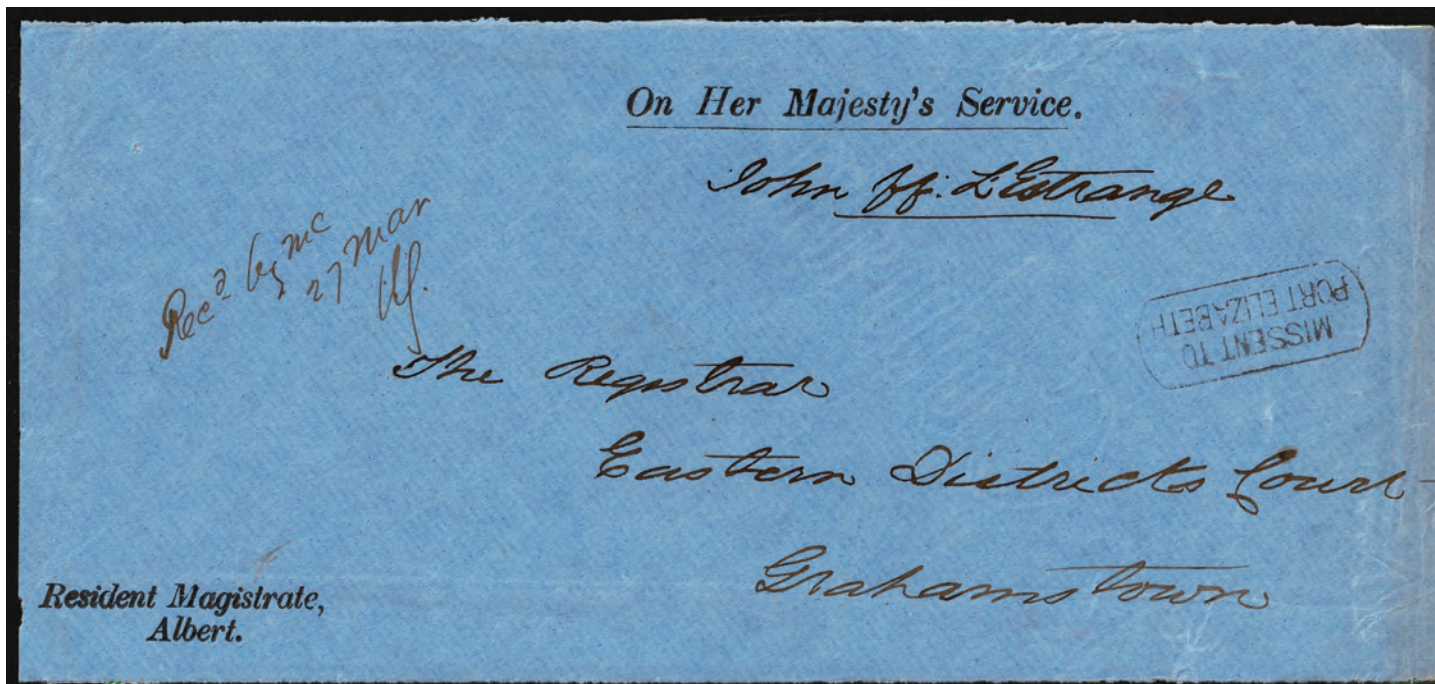 On Her Majesty's Service.
John ff. L'Estrange
Rec^d by me
27 Mar
MISSENT TO
PORT ELIZABETH
The Registrar
Eastern Districts Court
Grahamstown
Resident Magistrate,
Albert.